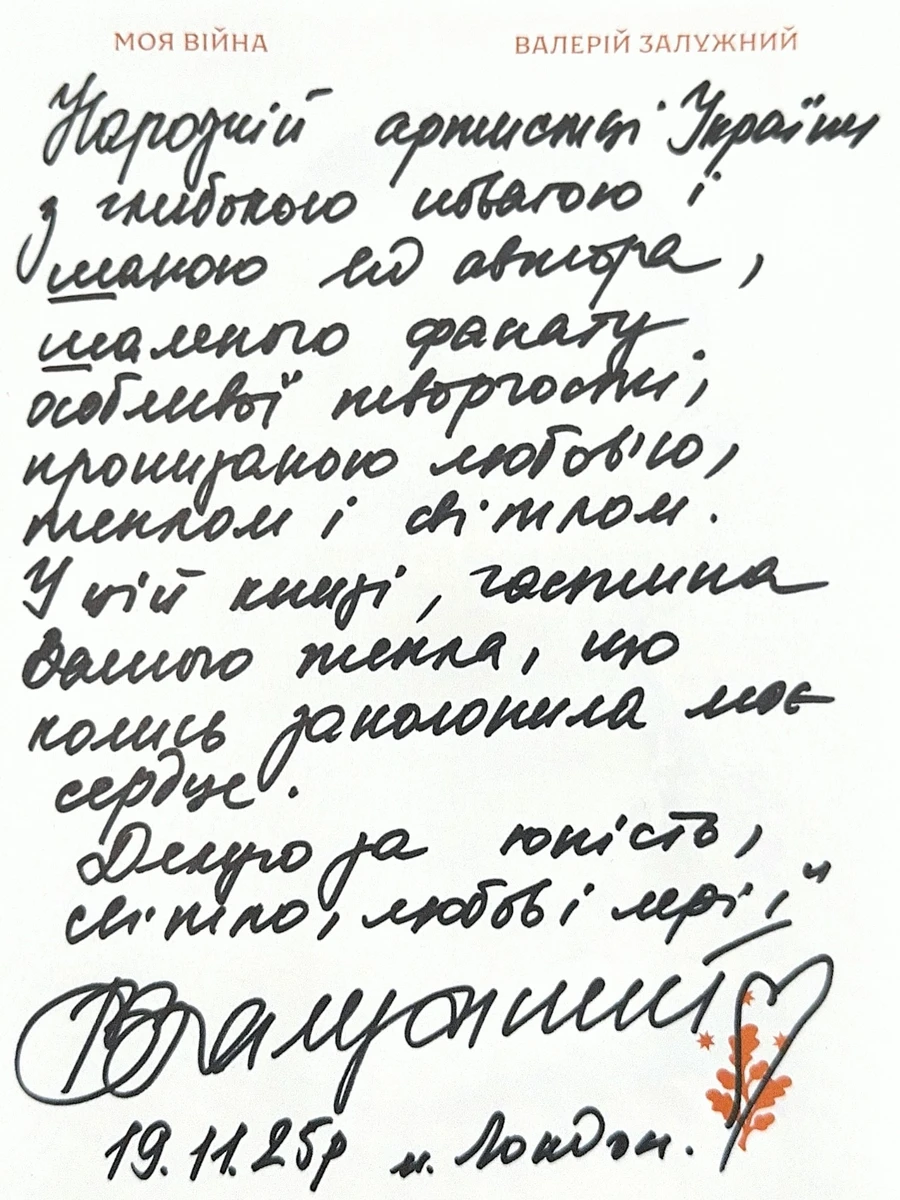 МОЯ ВІЙНА
ВАЛЕРІЙ ЗАЛУЖНИЙ
Народній артистці України
з глибокою повагою і
шаною від автора,
шаленого фанату
особливої творчости,
пронизаною любов'ю,
теплом і світлом.
У цій книзі, частина
Вашого тепла, що
колись заполонила моє
серце.
Дякую за юність,
світло, любов і мрії
ВЗалужний
19.11.25р м. Лондон.